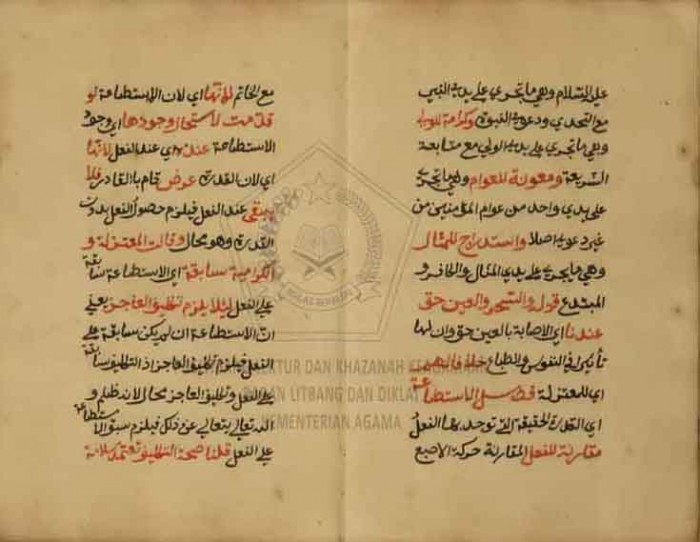 على السلام وهي ما تجري على يد النبي
مع التحدي ودعوى النبوة وكرامة للولي
وهي ما تجري على يد الولي مع متابعة
الشريعة ومعونة للعوام وهي ما تجري
على يدي واحد من عوام المؤمنين من
غير دعوى اصلا واستدراج للضال
وهي ما يجري على يدي الضال والكافر و
المبتدع قوله والسحر والعين حق
عندنا اي الاصابة بالعين حق وان لها
تأثيرا في النفوس والطباع خلافا لهم
اي للمعتزلة فصل الاستطاعة
اي القدرة الحقيقة التي توجد بها الفعل
مقارنة للفعل المقارنة حركة الاصبع
مع الخاتم لانها اي لان الاستطاعة لو
قدمت لاستحال وجودها اي وجود
الاستطاعة عنده اي عند الفعل لانها
اي لان القدرة عرض قام بالقادر فلا
يبقى عند الفعل فيلزم حصول الفعل بدون
القدرة وهو محال وقالت المعتزلة و
الكرامية سابقة اي الاستطاعة سابقة
على الفعل لئلا يلزم تكليف العاجز يعني
ان الاستطاعة ان لم يكن سابقة على
الفعل فيلزم تكليف العاجز اذ التكليف سابقة
على الفعل وتكليف العاجز محال لانه ظلم و
الله تعالى يتعالى عن ذلك فيلزم سبق الاستطاعة
على الفعل قلنا صحة التكليف تعتمد سلامة
KTUR DAN KHAZANAH KE
BADAN LITBANG DAN DIKLAT
KEMENTERIAN AGAMA